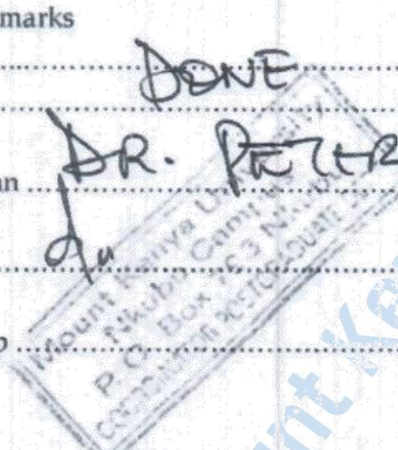 marks
DONE
DR. PETER
an
Mount Kenya University
Nkubu Campus
P. O. Box
COORDINATOR POSTGRADUATE